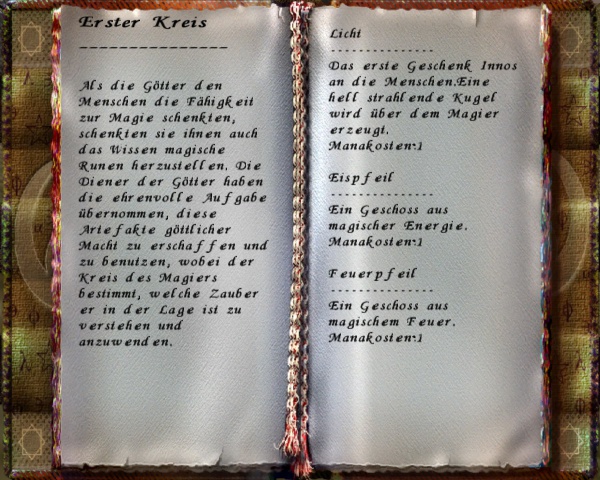 Erster Kreis
---------------
Als die Götter den
Menschen die Fähigkeit
zur Magie schenkten,
schenkten sie ihnen auch
das Wissen magische
Runen herzustellen. Die
Diener der Götter haben
die ehrenvolle Aufgabe
übernommen, diese
Artefakte göttlicher
Macht zu erschaffen und
zu benutzen, wobei der
Kreis des Magiers
bestimmt, welche Zauber
er in der Lage ist zu
verstehen und
anzuwenden.
Licht
---------------
Das erste Geschenk Innos
an die Menschen.Eine
hell strahlende Kugel
wird über dem Magier
erzeugt.
Manakosten:1
Eispfeil
---------------
Ein Geschoss aus
magischer Energie.
Manakosten:1
Feuerpfeil
---------------
Ein Geschoss aus
magischem Feuer.
Manakosten:1